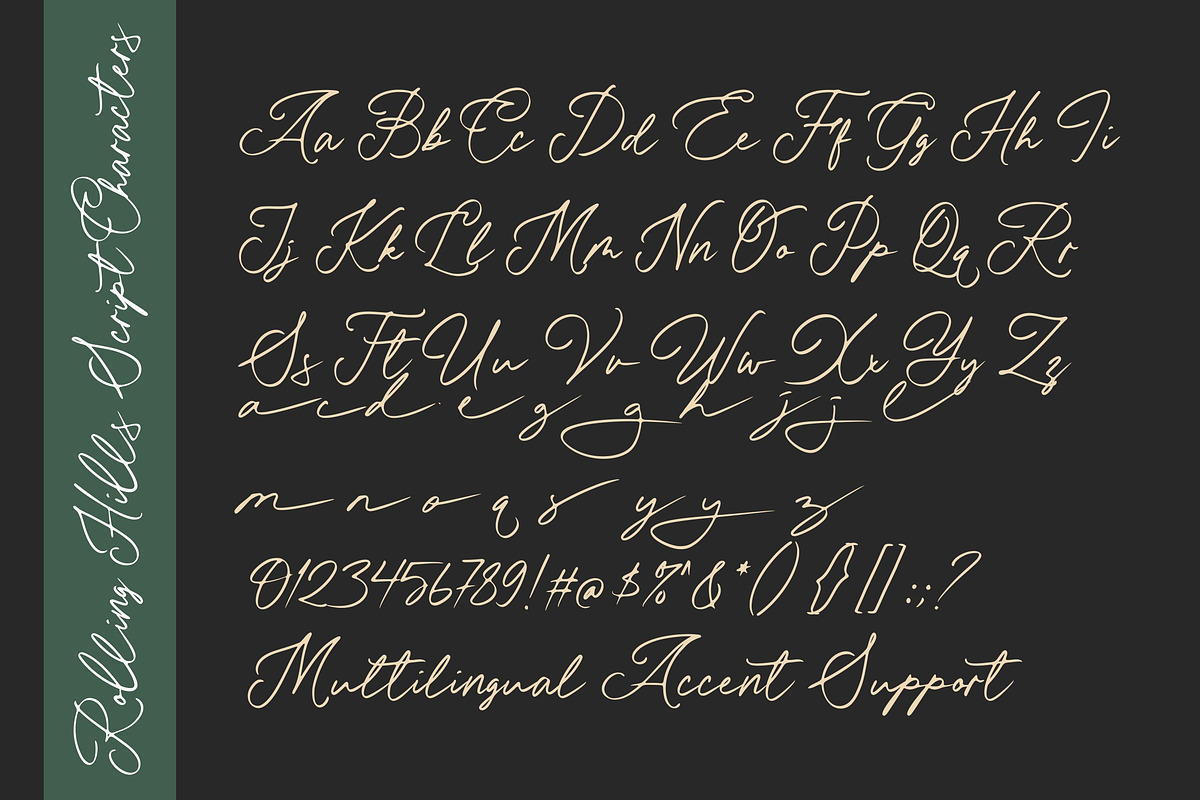 Rolling Hills Script Characters
Aa Bb Cc Dd Ee Ff Gg Hh Ii
Jj Kk Ll Mm Nn Oo Pp Qq Rr
Ss Tt Uu Vv Ww Xx Yy Zz
a c d e g g h j j l
m n o q s y y z
0123456789!#@$%^&*(){}[]:;?
Multilingual Accent Support